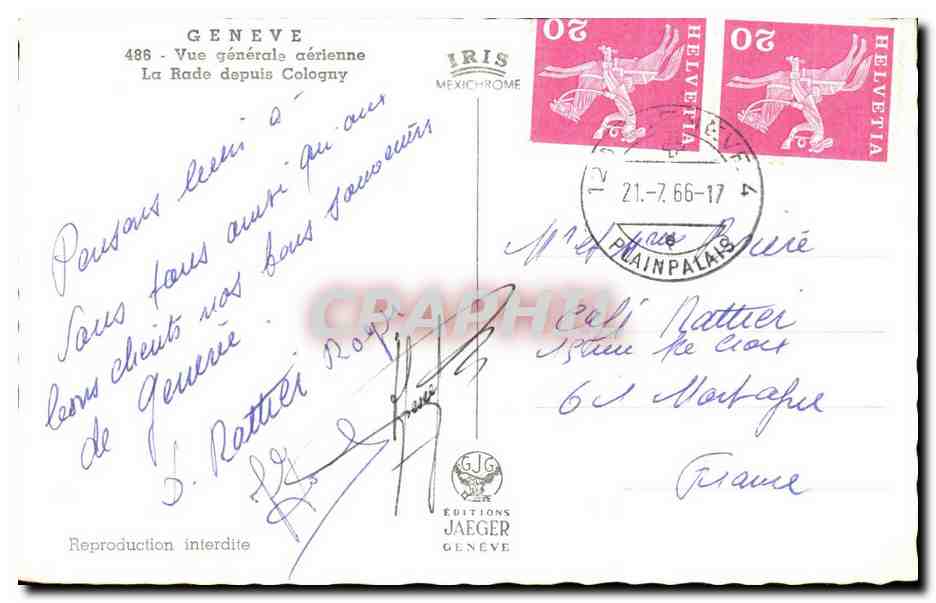 GENEVE
486 - Vue générale aérienne
La Rade depuis Cologny
IRIS
MEXICHROME
20
HELVETIA
20
HELVETIA
21.-7.66-17
4
PLAINPALAIS
Pensons bien à
Vous tous ainsi qu'aux
bons clients nos bons souvenirs
de Genève.
Rattier Roger
CRAPHIL
Café Rattier
Ste Croix
61 Mortagne
France
GJG
ÉDITIONS
JAEGER
GENÈVE
Reproduction interdite